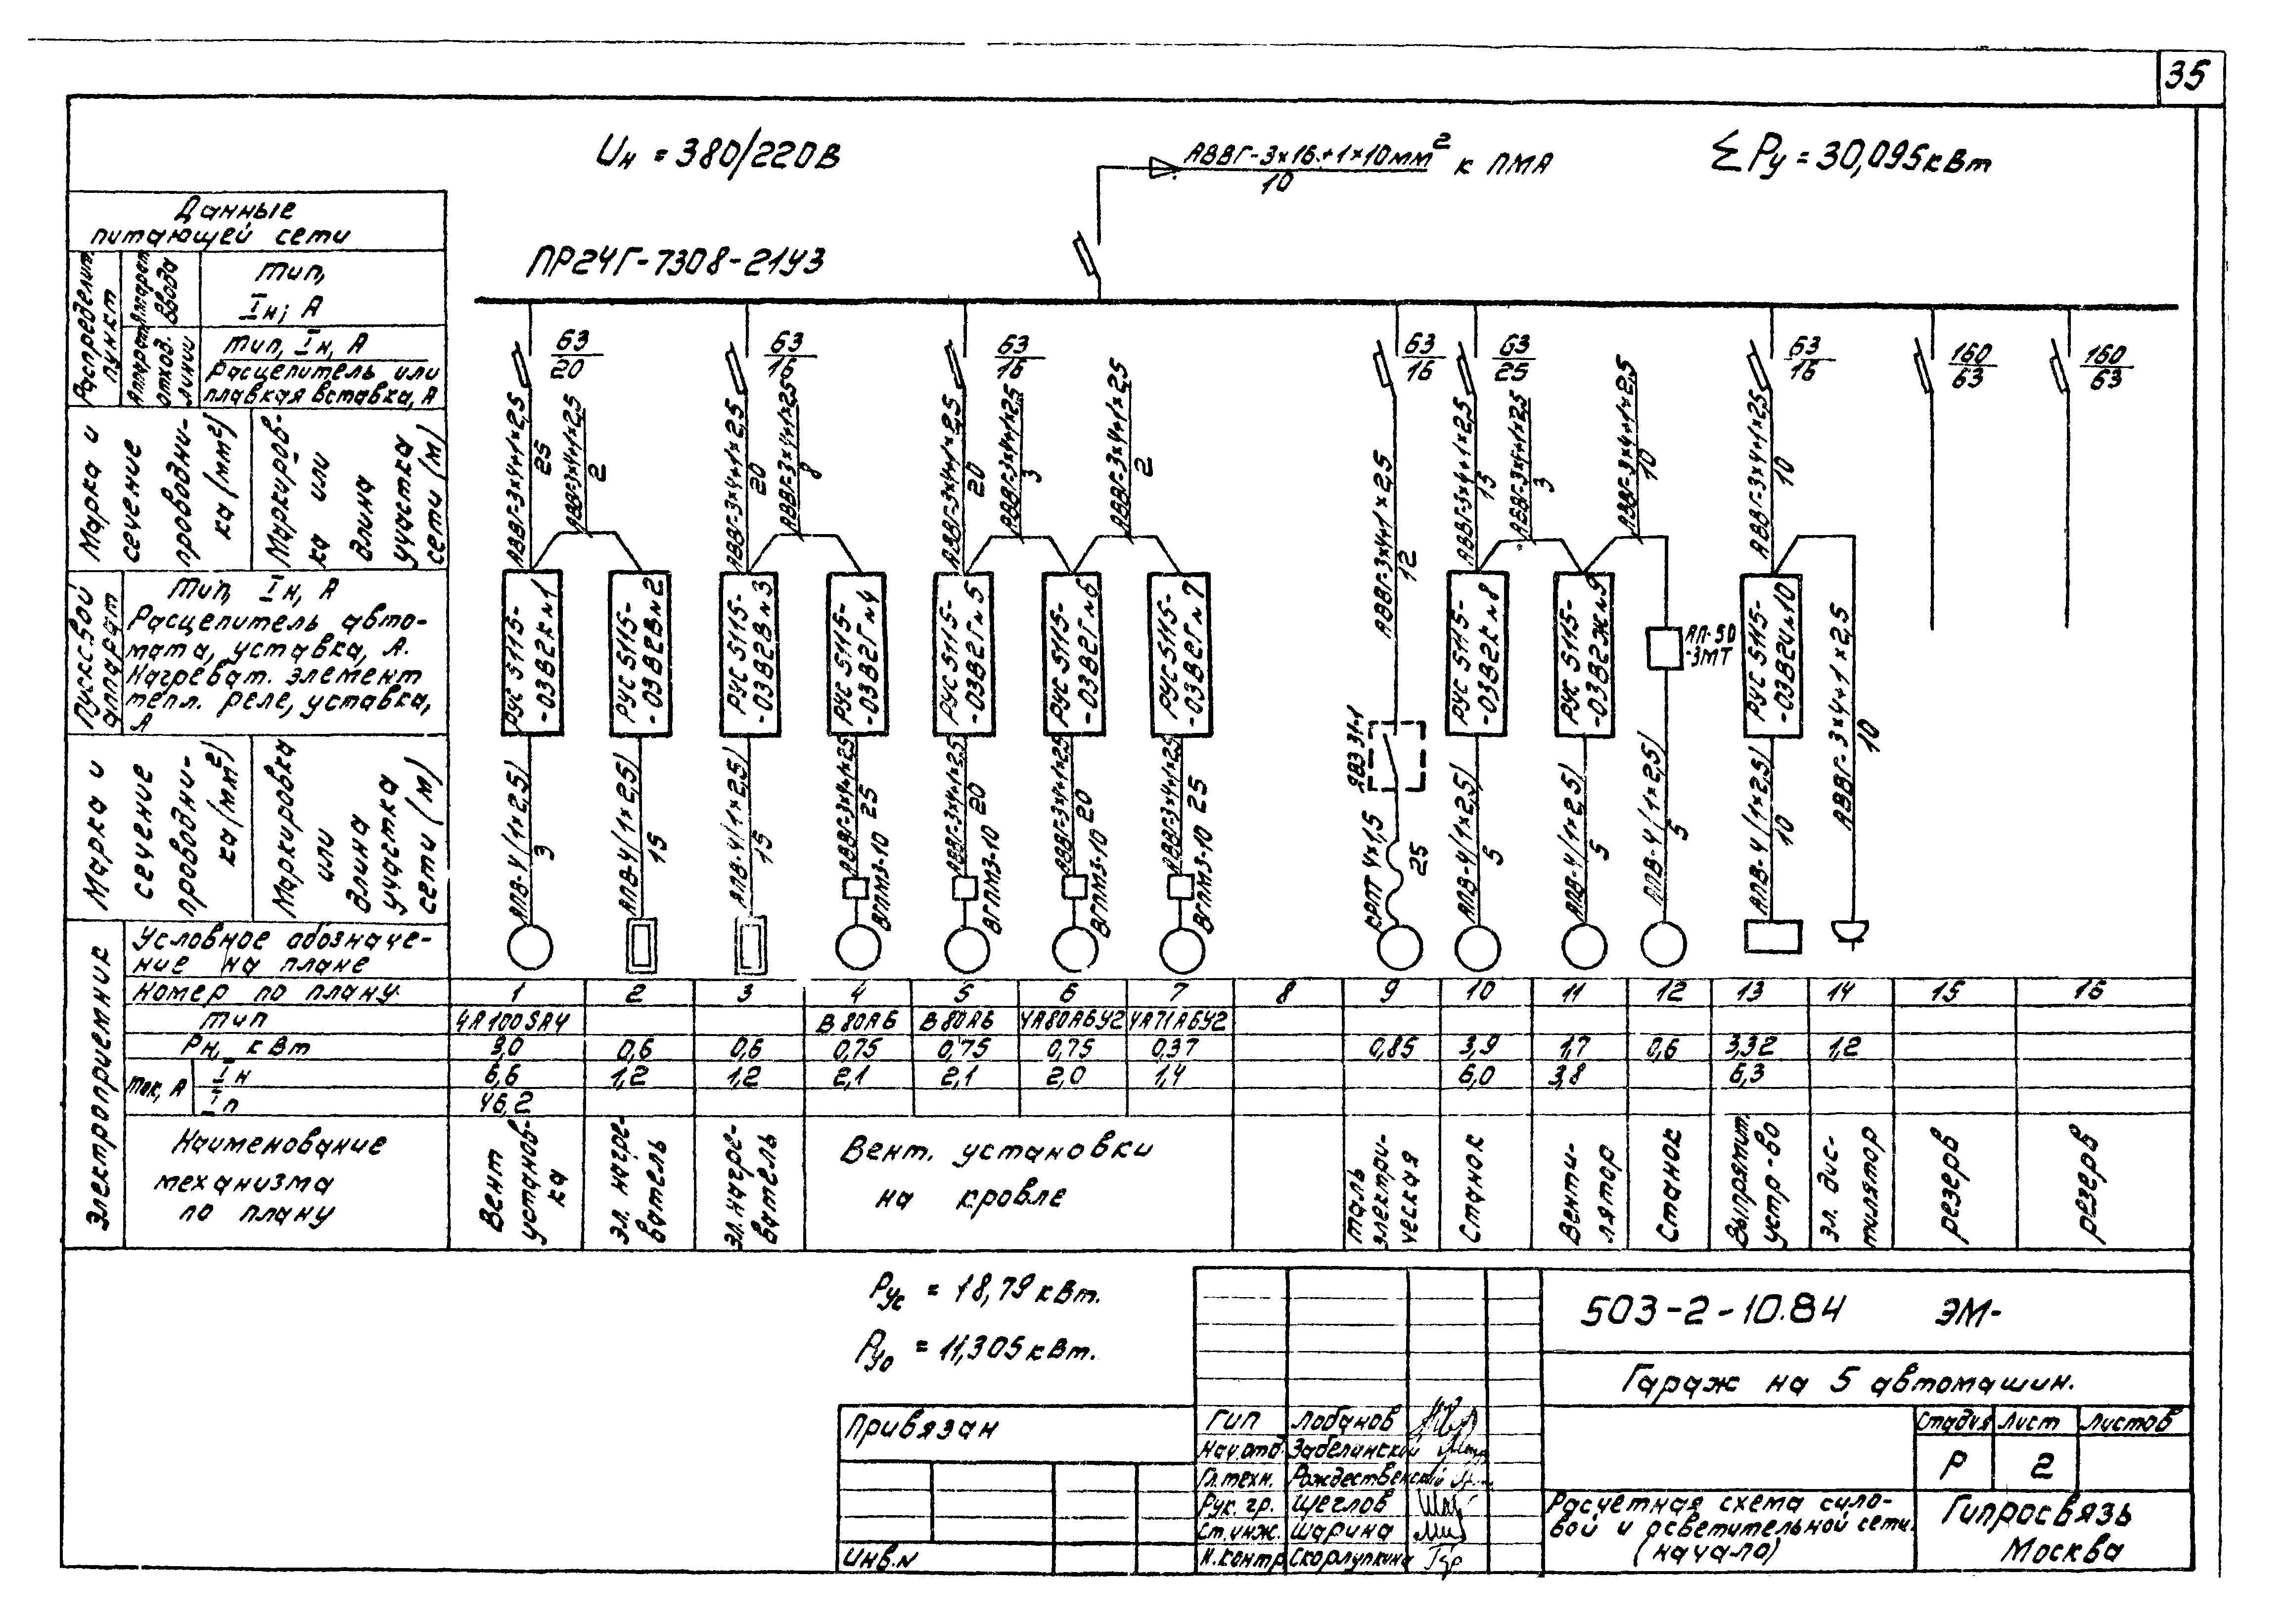 35
Uн = 380/220В
АВВГ-3×16+1×10мм²
10
к ПМА
ΣРу = 30,095кВт
ПР24Г-7308-21У3
Данные
питающей сети
Распределит. пункт
Аппарат ввода
Тип,
Iн, А
Аппарат отход. линии
Тип, Iн, А
Расцепитель или
плавкая вставка, А
63
20
63
16
63
16
63
16
63
25
63
16
160
63
160
63
Марка и
сечение
проводни-
ка (мм²)
Маркиров-
ка или
длина
участка
сети (м)
АВВГ-3×4+1×2,5
25
АВВГ-3×4+1×2,5
2
АВВГ-3×4+1×2,5
20
АВВГ-3×4+1×2,5
8
АВВГ-3×4+1×2,5
20
АВВГ-3×4+1×2,5
3
АВВГ-3×4+1×2,5
2
АВВГ-3×4+1×2,5
12
АВВГ-3×4+1×2,5
15
АВВГ-3×4+1×2,5
3
АВВГ-3×4+1×2,5
10
АВВГ-3×4+1×2,5
10
АВВГ-3×4+1×2,5
10
Пусковой
аппарат
Тип, Iн, А
Расцепитель авто-
мата, уставка, А.
Нагреват. элемент
тепл. реле, уставка,
А
РУС 5115-
-03В2К №1
РУС 5115-
-03В2В №2
РУС 5115-
-03В2В №3
РУС 5115-
-03В2Г №4
РУС 5115-
-03В2Г №5
РУС 5115-
-03В2Г №6
РУС 5115-
-03В2Г №7
ЯВЗ 31-1
РУС 5115-
-03В2К №8
РУС 5115-
-03В2Ж №9
АП-50
-3МТ
РУС 5115-
-03В2И №10
Марка и
сечение
проводни-
ка (мм²)
Маркировка
или
длина
участка
сети (м)
АПВ-4(1×2,5)
3
АПВ-4(1×2,5)
15
АПВ-4(1×2,5)
15
АВВГ-3×4+1×2,5
25
ВГПМ3-10
АВВГ-3×4+1×2,5
20
ВГПМ3-10
АВВГ-3×4+1×2,5
20
ВГПМ3-10
АВВГ-3×4+1×2,5
25
ВГПМ3-10
КРПТ 4×1,5
25
АПВ-4(1×2,5)
5
АПВ-4(1×2,5)
5
АПВ-4(1×2,5)
5
АПВ-4(1×2,5)
10
Электроприемник
Условное обозначе-
ние на плане
Номер по плану 1 2 3 4 5 6 7 8 9 10 11 12 13 14 15 16
Тип 4А100SА4 В80А6 В80А6 4А80А6У2 4А71А6У2
Рн, кВт 3,0 0,6 0,6 0,75 0,75 0,75 0,37 0,85 3,9 1,7 0,6 3,32 1,2
Ток, А
Iн 6,6 1,2 1,2 2,1 2,1 2,0 1,4 6,0 3,8 6,3
Iп 46,2
Наименование
механизма
по плану
Вент
установ-
ка
Эл. нагре-
ватель
Эл. нагре-
ватель
Вент. установки
на кровле
таль
электри-
ческая
Станок
Венти-
лятор
Станок
Выпрямит.
устр-во
Эл. дис-
тилятор
резерв
резерв
Рус = 18,79 кВт.
Руо = 11,305 кВт.
503-2-10.84 ЭМ-
Гараж на 5 автомашин.
Привязан
Инв.№
ГИП Лобанов
Нач.отд Забелинский
Гл.техн. Рождественский
Рук. гр. Щеглов
Ст.инж. Шарина
Н.контр Скорлупкина
Стадия Лист Листов
Р 2
Расчетная схема сило-
вой и осветительной сети.
(начало)
Гипросвязь
Москва